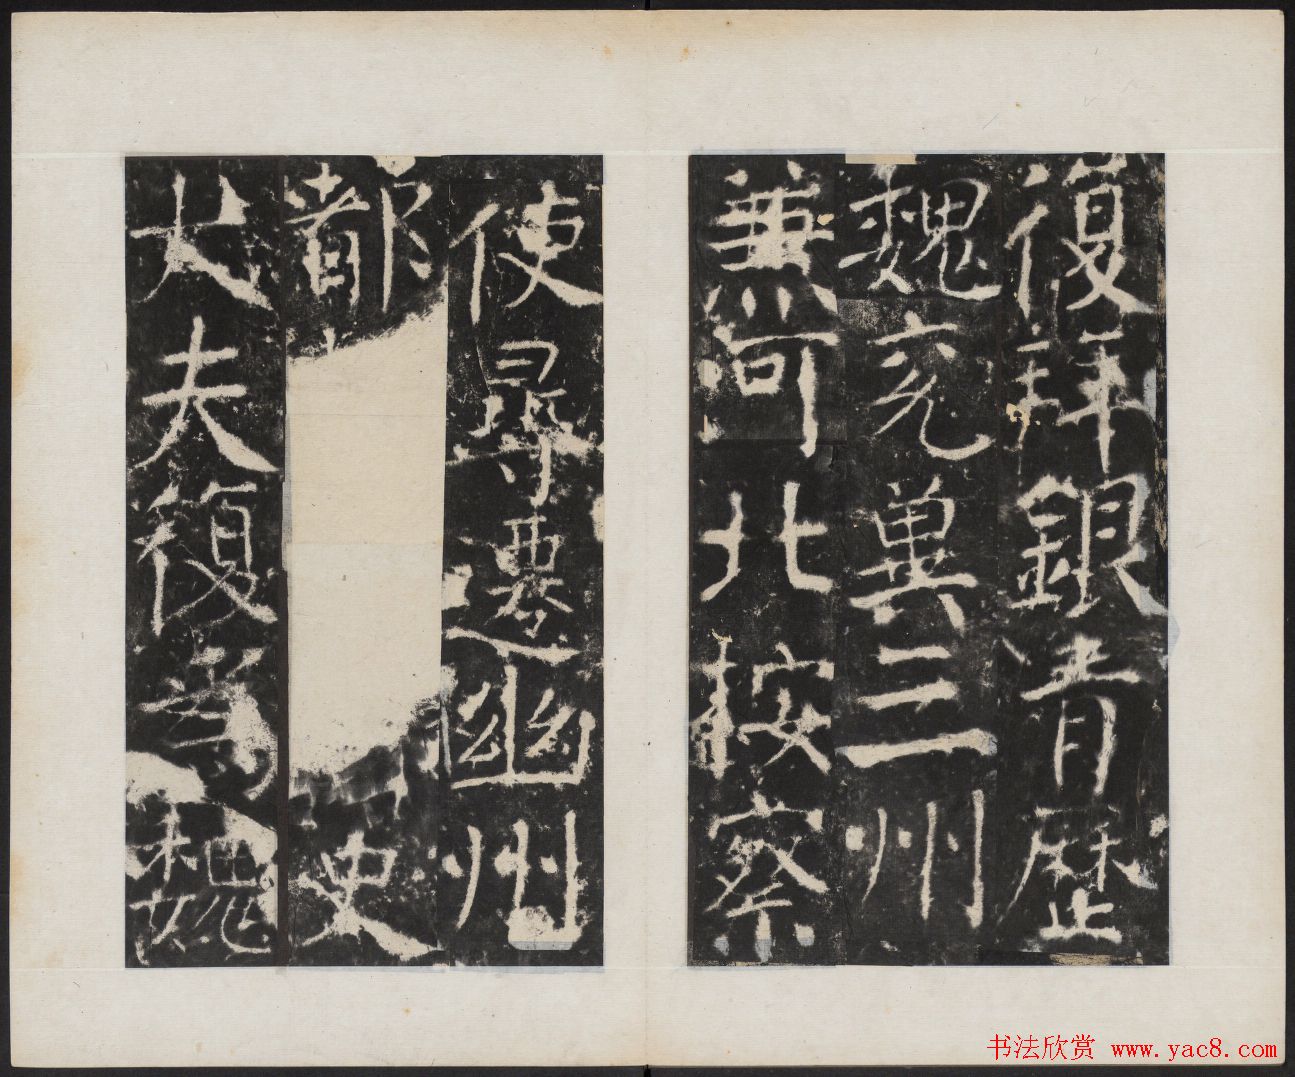 復拜銀青歷
魏兖兾三州
兼河北按察
使尋遷幽州
都
史
大夫復爲魏
书法欣赏 www.yac8.com